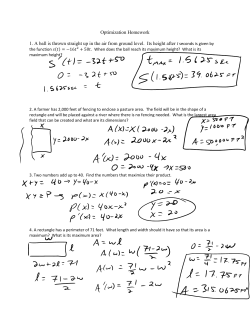 Optimization Homework
1. A ball is thrown straight up in the air from ground level. Its height after t seconds is given by
the function s(t) = -16t² + 50t. When does the ball reach its maximum height? What is its
maximum height?
S'(t) = -32t + 50
0 = -32t + 50
1.5625 sec = t
t max = 1.5625 sec
S(1.5625) = 39.0625 ft
2. A farmer has 2,000 feet of fencing to enclose a pasture area. The field will be in the shape of a
rectangle and will be placed against a river where there is no fencing needed. What is the largest area
field that can be created and what are its dimensions?
x
x
y = 2000-2x
A(x) = x(2000-2x)
A(x) = 2000x - 2x²
A'(x) = 2000 - 4x
0 = 2000 - 4x → x = 500
x = 500 FT
y = 1000 FT
A = 500000 FT²
3. Two numbers add up to 40. Find the numbers that maximize their product.
x + y = 40 → y = 40-x
x · y = P → P(x) = x(40-x)
P(x) = 40x - x²
P'(x) = 40 - 2x
P'(x) = 0 = 40 - 2x
20 = x
y = 20
x = 20
4. A rectangle has a perimeter of 71 feet. What length and width should it have so that its area is a
maximum? What is its maximum area?
w
l
2w + 2l = 71
l = 71-2w / 2
A = w l
A(w) = w(71-2w / 2)
A(w) = 71/2 w - w²
A'(w) = 71/2 - 2w
0 = 71/2 - 2w
w = 71/4 = 17.75 FT
l = 17.75 FT
A = 315.0625 FT²